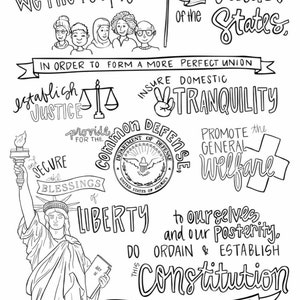 We the People
of the
States,
IN ORDER TO FORM A MORE PERFECT UNION
establish
JUSTICE
INSURE DOMESTIC
TRANQUILITY
provide
FOR THE
COMMON DEFENSE,
DEPARTMENT OF DEFENSE
PROMOTE the
GENERAL
Welfare
SECURE
the
BLESSINGS
of
LIBERTY
to ourselves
and our Posterity,
DO ORDAIN & ESTABLISH
this
Constitution